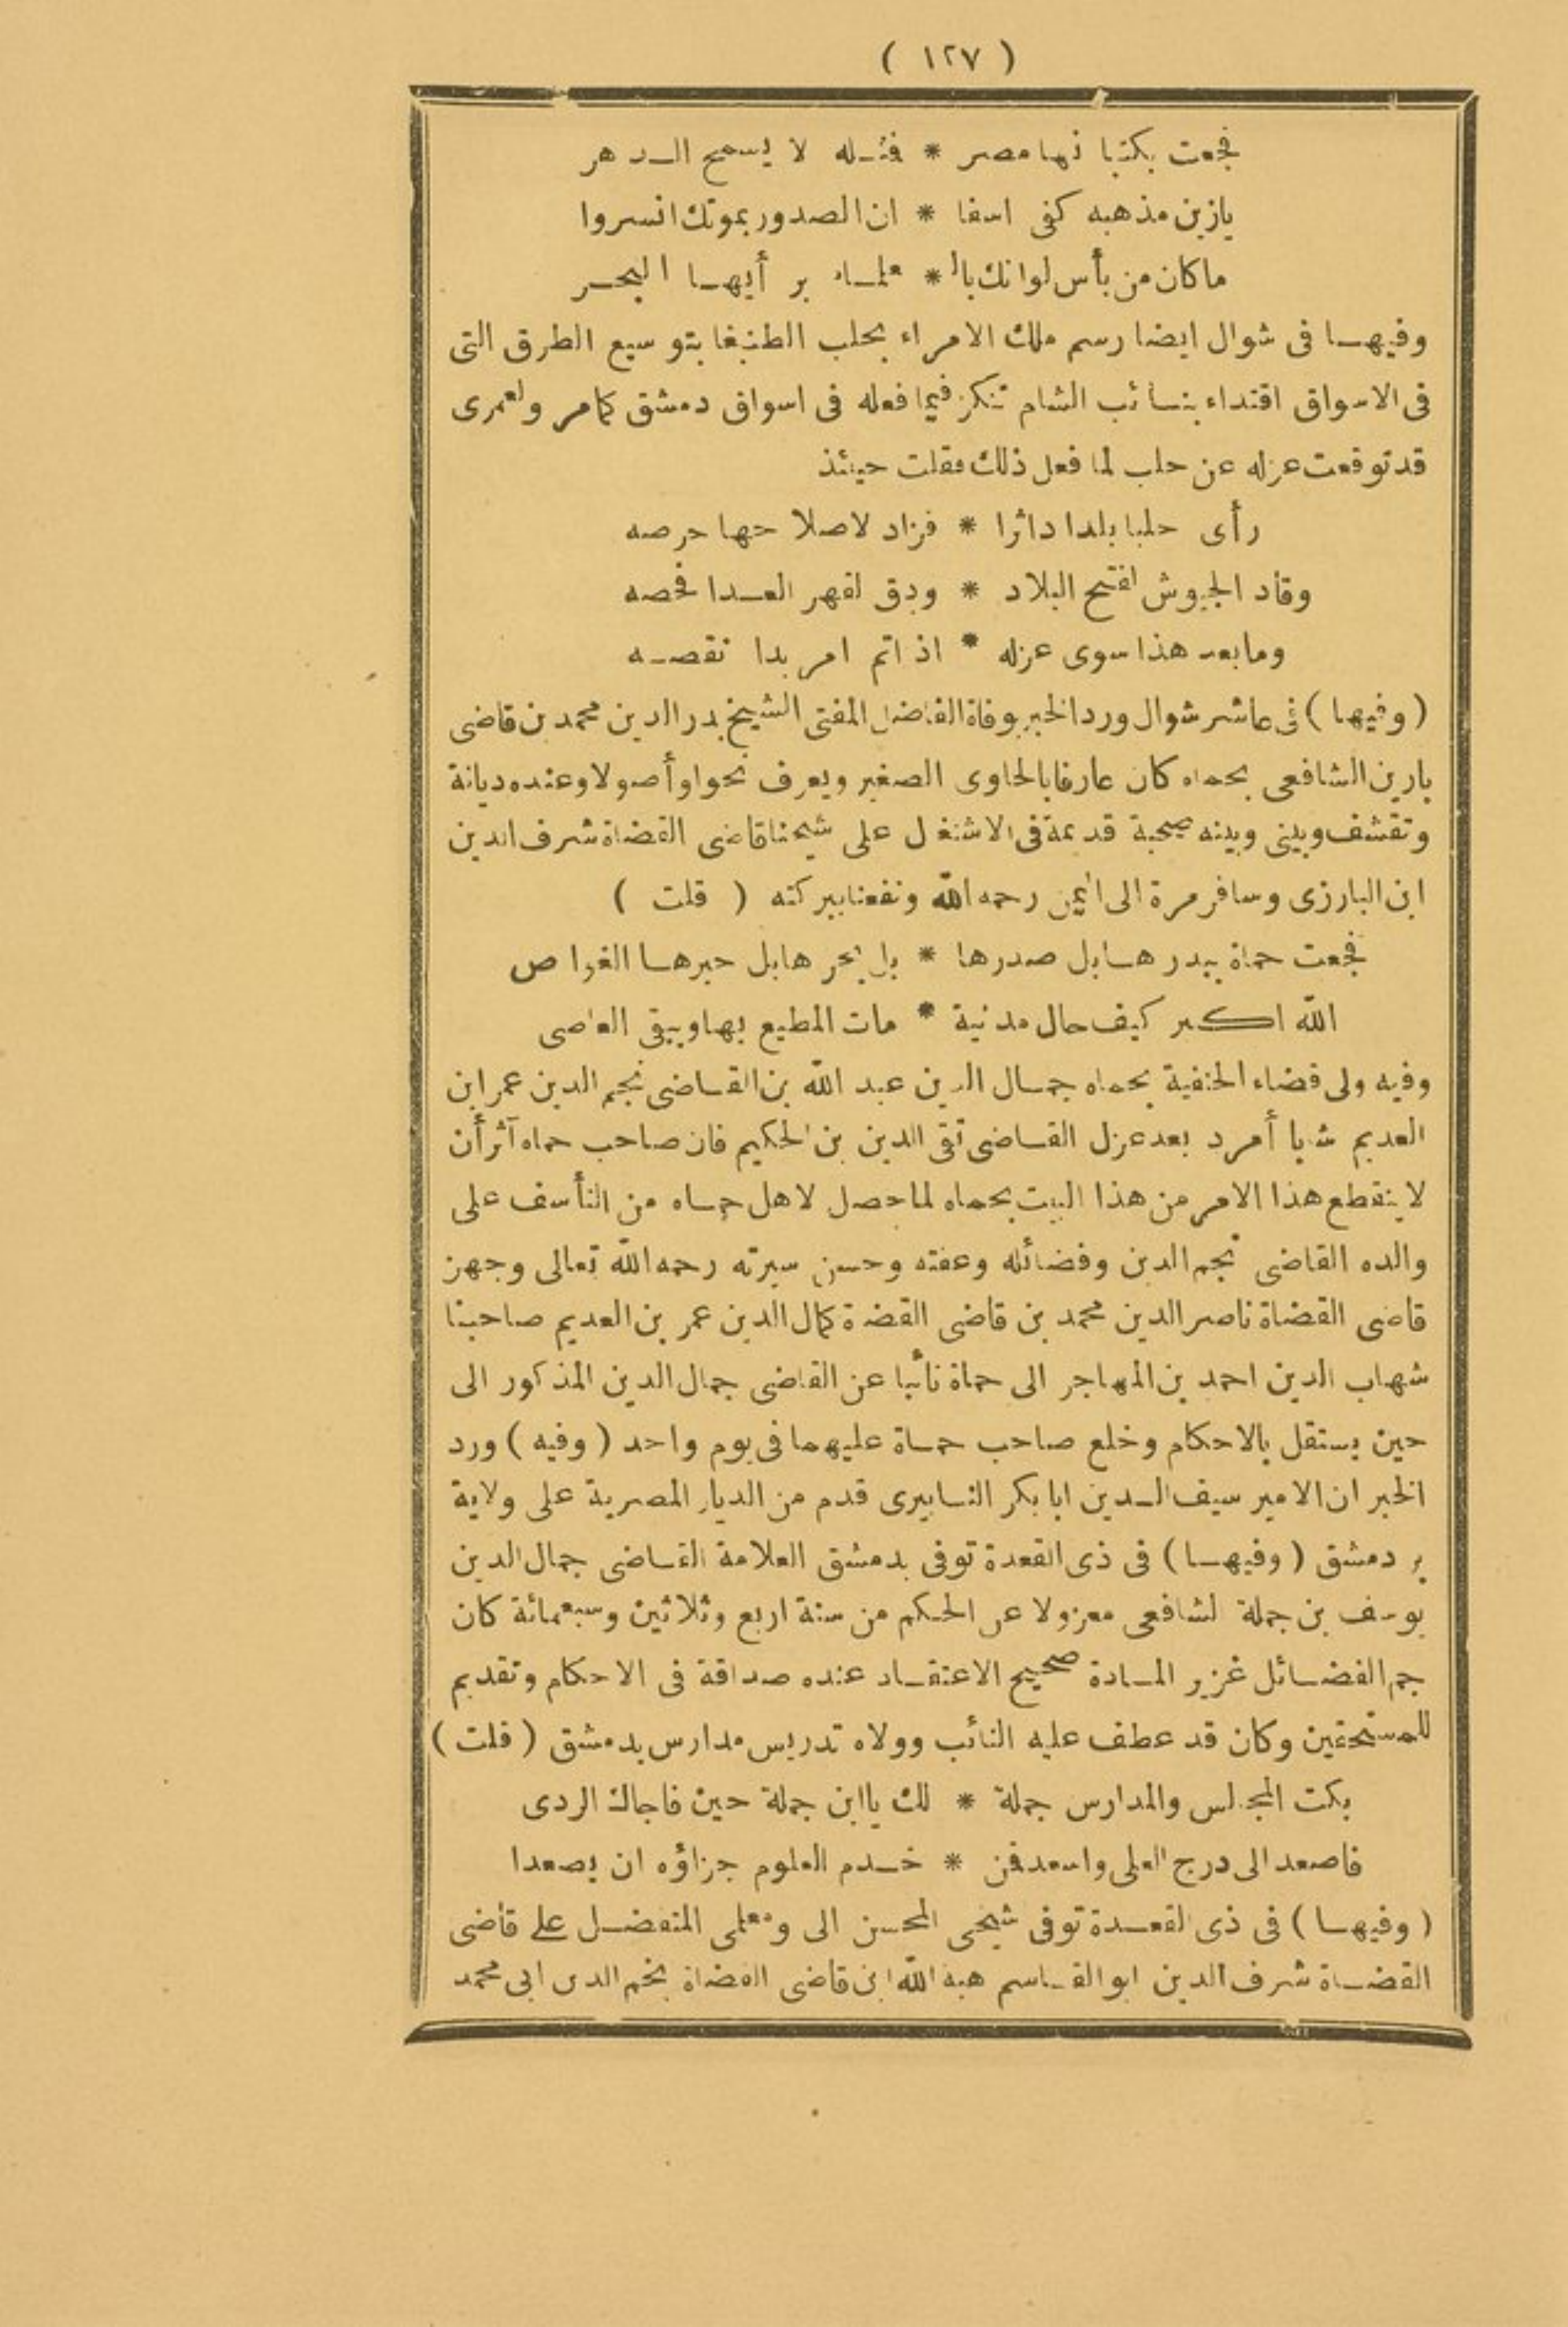 ( ١٢٧ )
فجعت بكتبا نها مصر * فمثله لا يسمح الدهر
يازين مذهبه كفى اسفا * ان الصدور بموتك انسروا
ما كان من بأس لوانك بال * علماء بر أيها البحر
وفيها فى شوال ايضا رسم ملك الامراء بحلب الطنبغا بتوسيع الطرق التى
فى الاسواق اقتداء بنائب الشام تنكز فيما فعله فى اسواق دمشق كمامر ولعمرى
قد توقعت عزله عن حلب لما فعل ذلك فقلت حينئذ
رأى حلبا بلدا داثرا * فزاد لاصلاحها حرصه
وقاد الجيوش لفتح البلاد * ودق لقهر العدا فحصه
وما بعد هذا سوى عزله * اذ اتم امر بدا نقصه
( وفيها ) فى عاشر شوال ورد الخبر بوفاة الفاضل المفتى الشيخ بدر الدين محمد بن قاضى
بارين الشافعى بحماه كان عارفا بالحاوى الصغير ويعرف نحوا وأصولا وعنده ديانة
وتقشف وبينى وبينه صحبة قديمة فى الاشتغال على شيخنا قاضى القضاة شرف الدين
ابن البارزى وسافر مرة الى اليمن رحمه الله ونفعنا ببركته ( قلت )
فجعت حماة ببدرها بل صدرها * بل بحرها بل حبرها الغواص
الله اكبر كيف حال مدينة * مات المطيع بها ويبقى العاصى
وفيه ولى قضاء الحنفية بحماه جمال الدين عبد الله بن القاضى نجم الدين عمر ابن
العديم شابا أمرد بعد عزل القاضى تقى الدين بن الحكيم فان صاحب حماه آثر أن
لا ينقطع هذا الامر من هذا البيت بحماه لما حصل لاهل حماه من التأسف على
والده القاضى نجم الدين وفضائله وعفته وحسن سيرته رحمه الله تعالى وجهز
قاضى القضاة ناصر الدين محمد بن قاضى القضاة كمال الدين عمر بن العديم صاحبنا
شهاب الدين احمد بن المهاجر الى حماة نائبا عن القاضى جمال الدين المذكور الى
حين يستقل بالاحكام وخلع صاحب حماة عليهما فى يوم واحد ( وفيه ) ورد
الخبر ان الامير سيف الدين ابا بكر النابيرى قدم من الديار المصرية على ولاية
بر دمشق ( وفيها ) فى ذى القعدة توفى بدمشق العلامة القاضى جمال الدين
يوسف بن جملة الشافعى معزولا عن الحكم من سنة اربع وثلاثين وسبعمائة كان
جم الفضائل غزير المادة صحيح الاعتقاد عنده صداقة فى الاحكام وتقديم
للمستحقين وكان قد عطف عليه النائب وولاه تدريس مدارس بدمشق ( قلت )
بكت المجالس والمدارس جملة * لك يا ابن جملة حين فاجاك الردى
فاصعد الى درج العلى واسعد فمن * خدم العلوم جزاؤه ان يصعدا
( وفيها ) فى ذى القعدة توفى شيخى المحسن الى ومعلمى المتفضل على قاضى
القضاة شرف الدين ابو القاسم هبة الله ابن قاضى القضاة نجم الدين ابى محمد